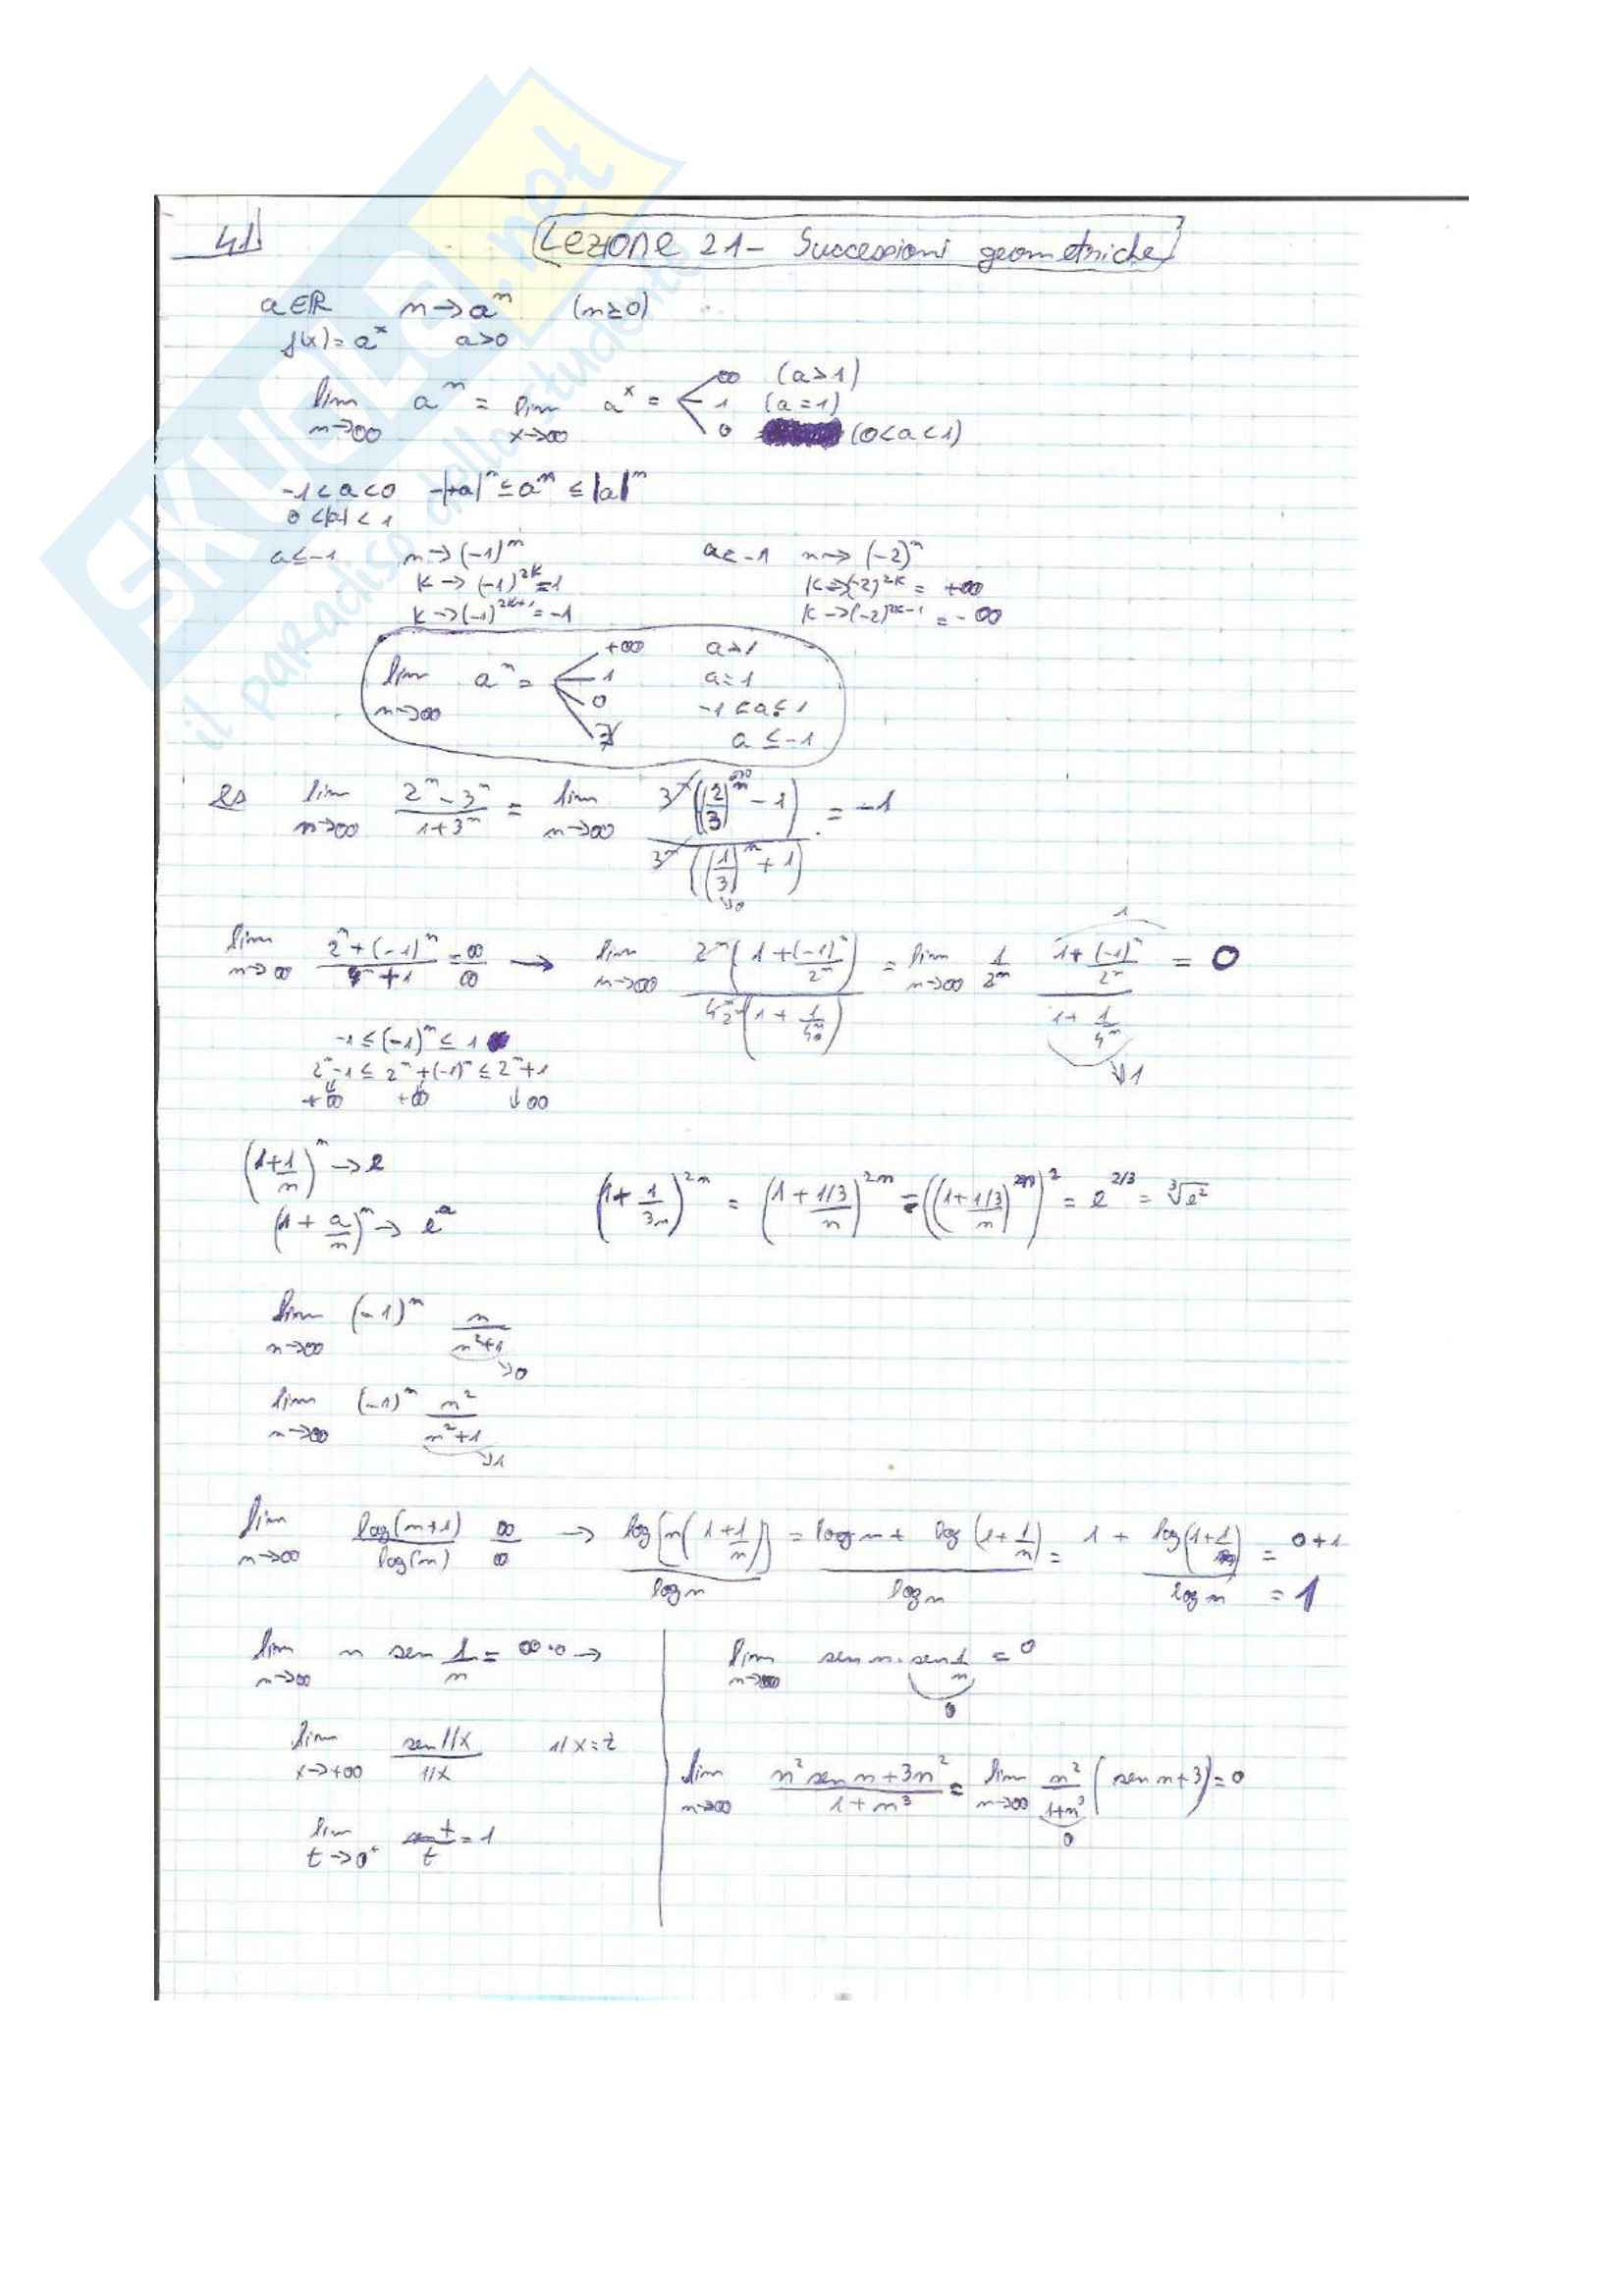 SKUOLA.net
il paradiso dello studente
41
Lezione 21 - Successioni geometriche
a∈ℝ n→aⁿ (n≥0)
f(x)=aˣ a>0
lim n→∞ aⁿ = lim x→∞ aˣ = ∞ (a>1)
1 (a=1)
0 (0<a<1)
-1<a<0 -|+a|ⁿ ≤ aⁿ ≤ |a|ⁿ
0<|a|<1
a≤-1 n→(-1)ⁿ a<-1 n→(-2)ⁿ
k→(-1)^2k=1 k→(-2)^2k = +∞
k→(-1)^2k+1=-1 k→(-2)^2k-1 = -∞
lim n→∞ aⁿ = +∞ a>1
1 a=1
0 -1<a<1
∄ a≤-1
es lim n→∞ (2ⁿ-3ⁿ)/(1+3ⁿ) = lim n→∞ 3ⁿ((2/3)ⁿ-1) / 3ⁿ((1/3)ⁿ+1) = -1
lim n→∞ (2ⁿ+(-1)ⁿ)/(4ⁿ+1) = ∞/∞ → lim n→∞ 2ⁿ(1+(-1)ⁿ/2ⁿ) / 4ⁿ(1+1/4ⁿ) = lim n→∞ 1/2ⁿ (1+(-1)ⁿ/2ⁿ)/(1+1/4ⁿ) = 0
-1≤(-1)ⁿ≤1
2ⁿ-1≤2ⁿ+(-1)ⁿ≤2ⁿ+1
+∞ +∞ ↓∞
(1+1/n)ⁿ → e
(1+a/n)ⁿ → eᵃ (1+1/3n)^2n = (1+1/3/n)^2n = ((1+1/3/n)ⁿ)² = e^2/3 = ∛e²
lim n→∞ (-1)ⁿ n/(n²+1) →0
lim n→∞ (-1)ⁿ n²/(n²+1) →1
lim n→∞ log(n+1)/log(n) ∞/∞ → log[n(1+1/n)]/log n = (log n + log(1+1/n))/log n = 1 + log(1+1/n)/log n = 0+1
= 1
lim n→∞ n sen 1/n = ∞·0 →
lim x→+∞ sen 1/x / 1/x 1/x=t
lim t→0⁺ sen t/t = 1
lim n→∞ sen n · sen 1/n = 0
0
lim n→∞ (n² sen n+3n²)/(1+n³) = lim n→∞ n²/(1+n³) (sen n+3)=0
0